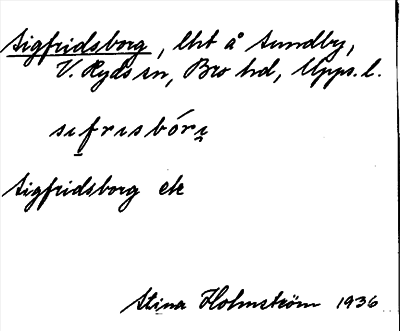 Sigfridsborg, lht å Sundby,
V. Ryds sn, Bro hd, Upps. l.
sıfrısbórı̯
Sigfridsborg ek
Stina Holmström 1936